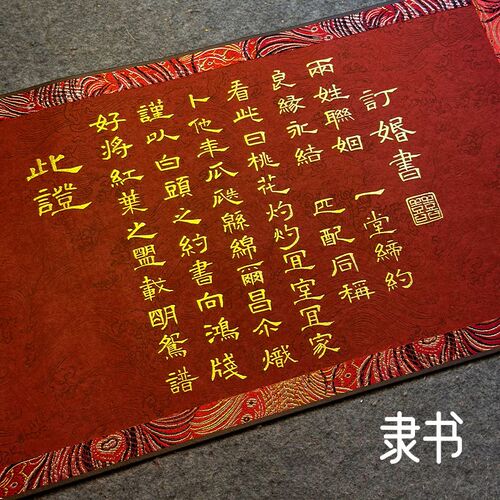 訂婚書
兩姓聯姻 一堂締約
良緣永結 匹配同稱
看此日桃花灼灼宜室宜家
卜他年瓜瓞緜綿爾昌尒熾
謹以白頭之約書向鴻牋
好將紅葉之盟載明鴛譜
此證
隶书